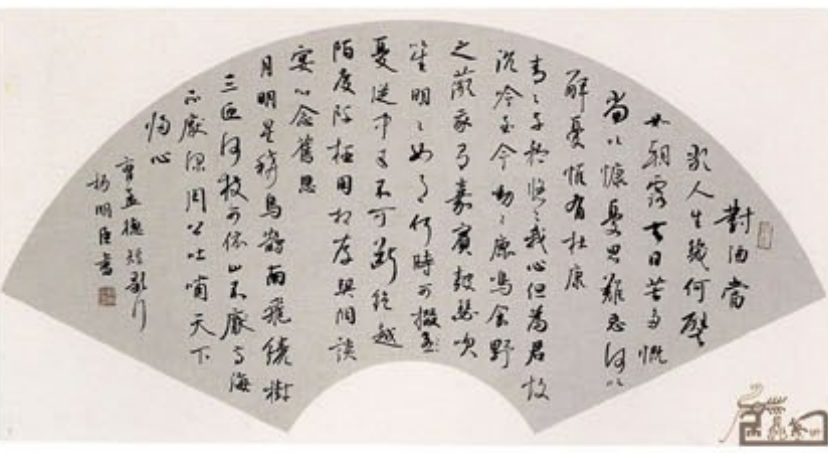 對酒當
歌人生幾何譬
如朝露去日苦多慨
當以慷憂思難忘何以
解憂惟有杜康
青々子衿悠々我心但為君故
沉吟至今呦々鹿鳴食野
之蘋我有嘉賓鼓瑟吹
笙明々如月何時可掇
憂從中來不可斷絕越
陌度阡枉用相存契闊談
宴心念舊恩
月明星稀烏鵲南飛繞樹
三匝何枝可依山不厭高海
不厭深周公吐哺天下
歸心
曹孟德短歌行
楊明臣書